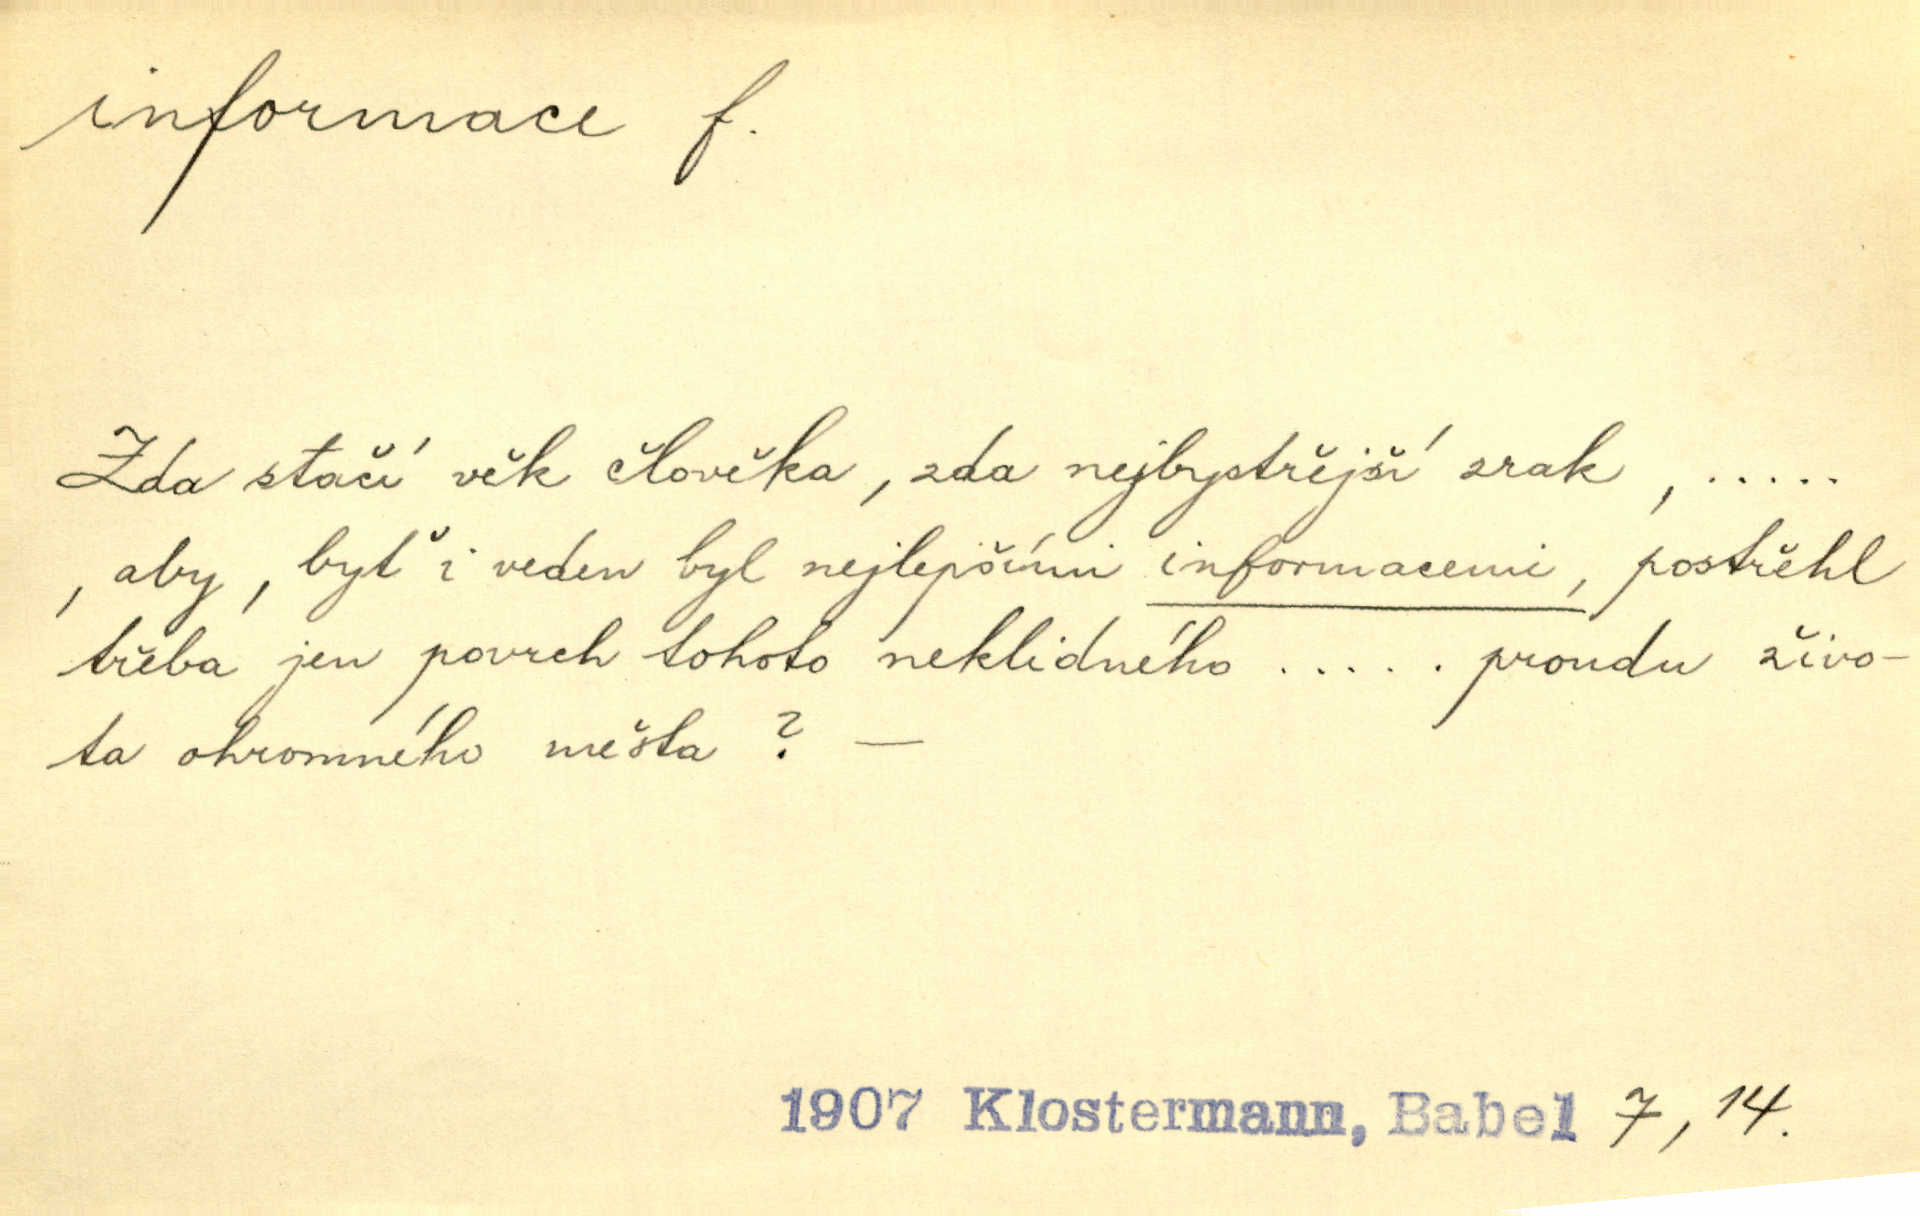 informace f.
Zda stačí věk člověka, zda nejbystřejší zrak, .....
, aby, byť i veden byl nejlepšími informacemi, postřehl
třeba jen povrch tohoto neklidného ..... proudu živo-
ta ohromného města? —
1907 Klostermann, Babel 7, 14.